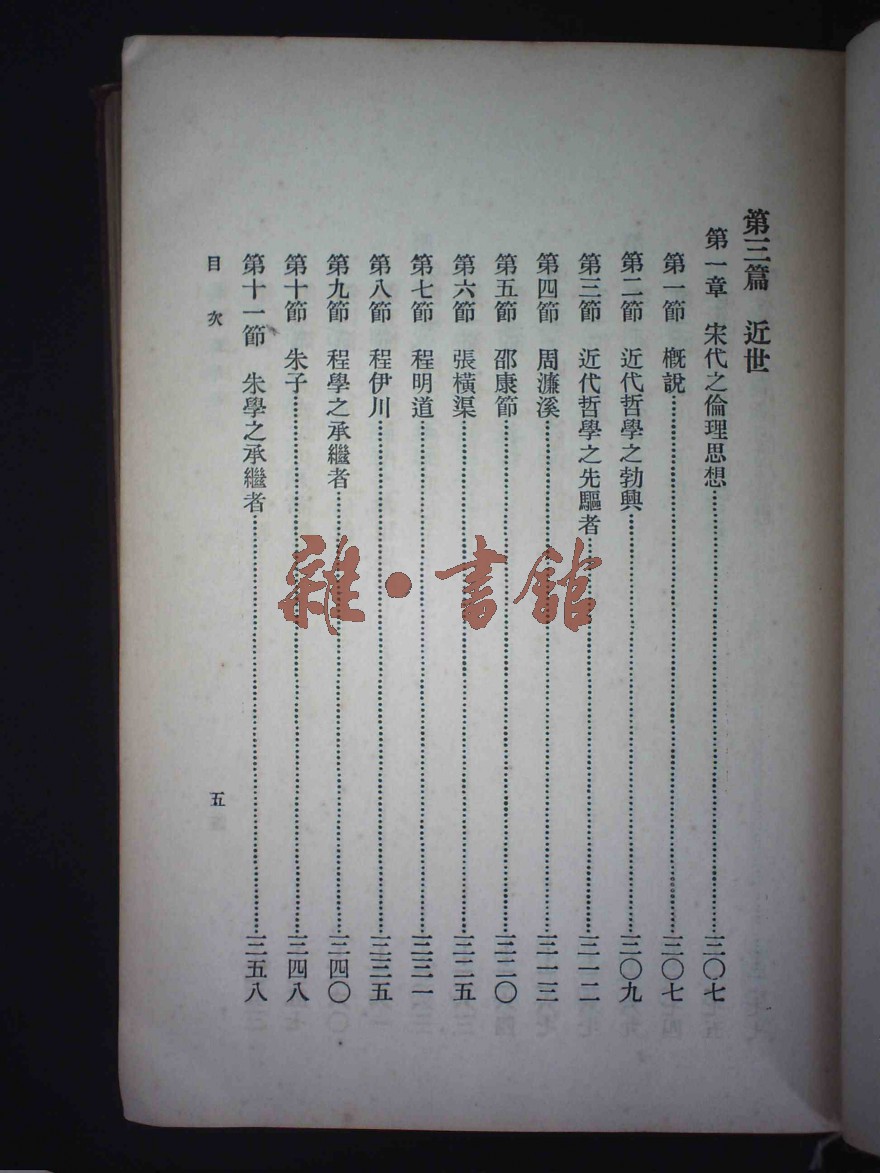 第三篇　近世
第一章　宋代之倫理思想…………三〇七
第一節　概說…………三〇七
第二節　近代哲學之勃興…………三〇九
第三節　近代哲學之先驅者…………三一二
第四節　周濂溪…………三一三
第五節　邵康節…………三二〇
第六節　張橫渠…………三二五
第七節　程明道…………三三一
第八節　程伊川…………三三五
第九節　程學之承繼者…………三四〇
第十節　朱子…………三四八
第十一節　朱學之承繼者…………三五八
目次　五
雜·書館